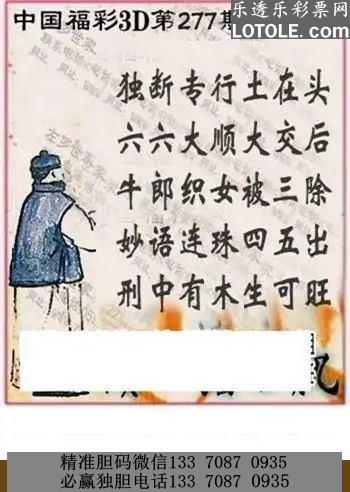 中国福彩3D第277期
乐透乐彩票网
WWW.LOTOLE.COM
独断专行土在头
六六大顺大交后
牛郎织女被三除
妙语连珠四五出
刑中有木生可旺
精准胆码微信133 7087 0935
必赢独胆电话133 7087 0935